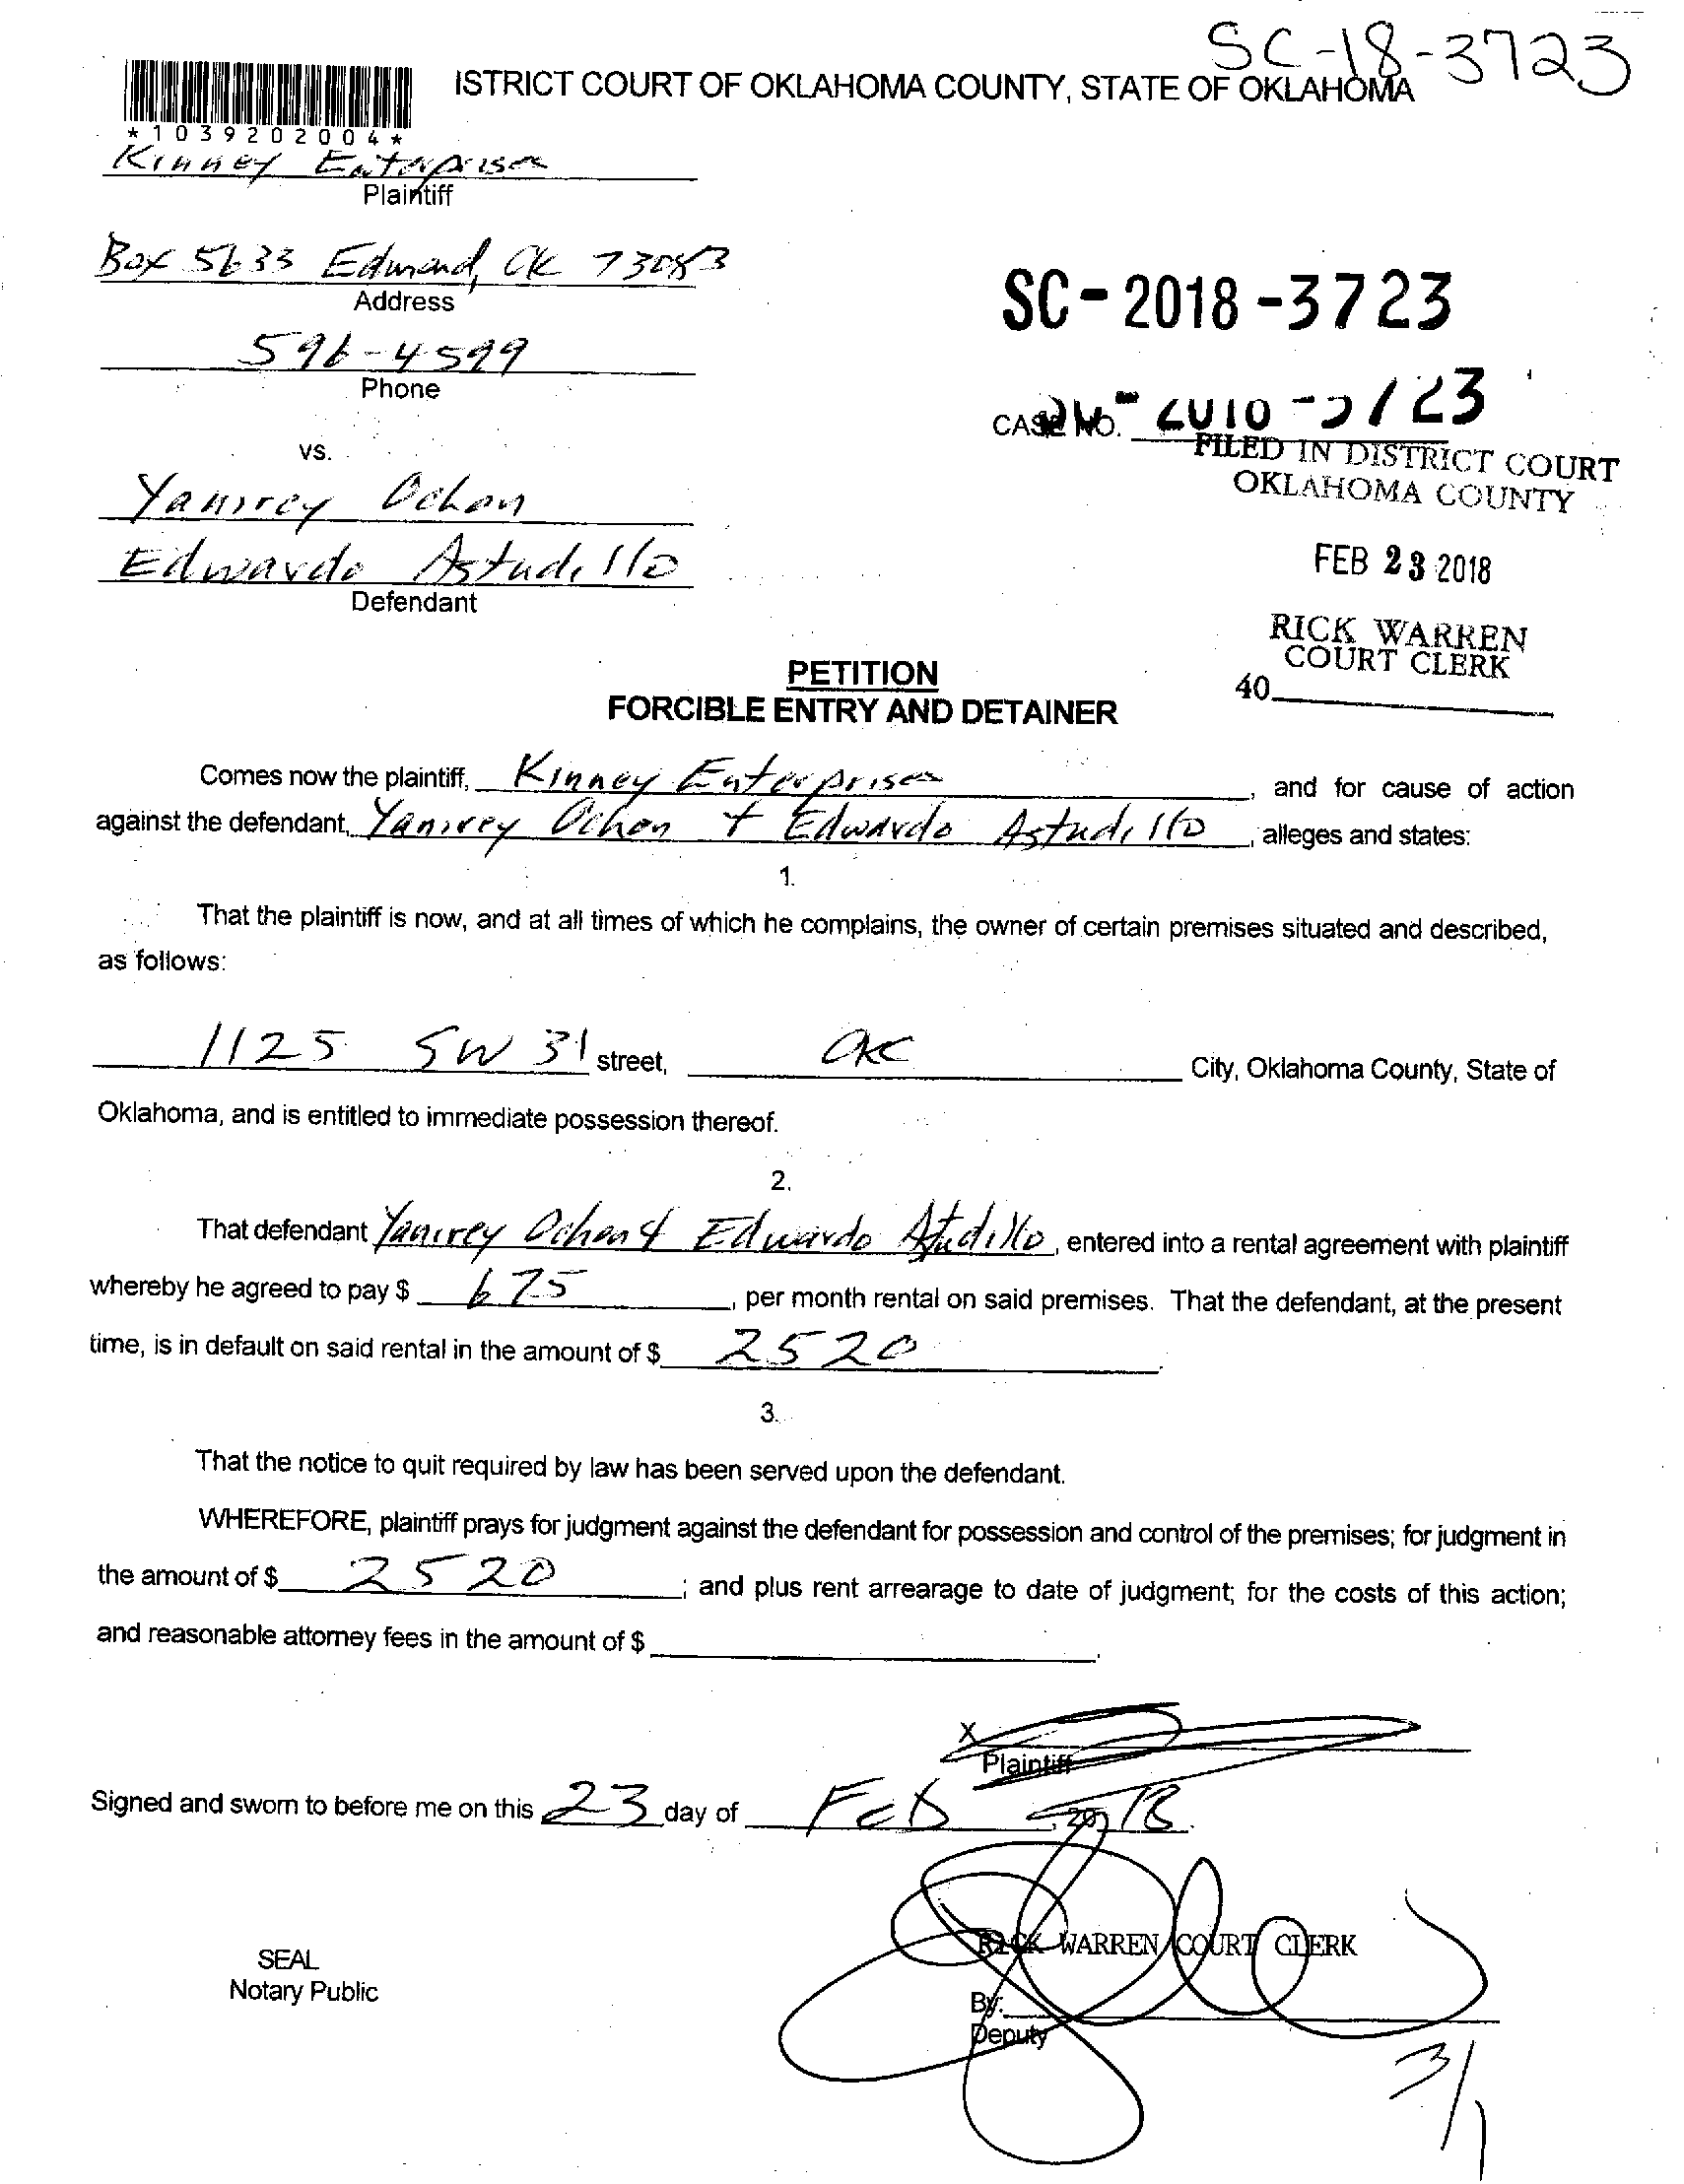 SC-18-3723
ISTRICT COURT OF OKLAHOMA COUNTY, STATE OF OKLAHOMA
*1039202004*
Kinney Enterprises
Plaintiff
Box 5633 Edmond, OK 73083
Address
SC-2018-3723
596-4599
Phone
CASE NO.
FILED IN DISTRICT COURT
OKLAHOMA COUNTY
vs.
Yanirey Ochon
Edwardo Astudillo
Defendant
FEB 23 2018
RICK WARREN
COURT CLERK
40
PETITION
FORCIBLE ENTRY AND DETAINER
Comes now the plaintiff, Kinney Enterprises, and for cause of action
against the defendant, Yanirey Ochon + Edwardo Astudillo, alleges and states:
1.
That the plaintiff is now, and at all times of which he complains, the owner of certain premises situated and described,
as follows:
1125 SW 31 street, OKC City, Oklahoma County, State of
Oklahoma, and is entitled to immediate possession thereof.
2.
That defendant Yanirey Ochon & Edwardo Atudillo, entered into a rental agreement with plaintiff
whereby he agreed to pay $ 675, per month rental on said premises. That the defendant, at the present
time, is in default on said rental in the amount of $ 2520.
3.
That the notice to quit required by law has been served upon the defendant.
WHEREFORE, plaintiff prays for judgment against the defendant for possession and control of the premises; for judgment in
the amount of $ 2520; and plus rent arrearage to date of judgment; for the costs of this action;
and reasonable attorney fees in the amount of $ .
X
Plaintiff
Signed and sworn to before me on this 23 day of Feb, 2018.
RICK WARREN COURT CLERK
SEAL
Notary Public
By:
Deputy
3/1